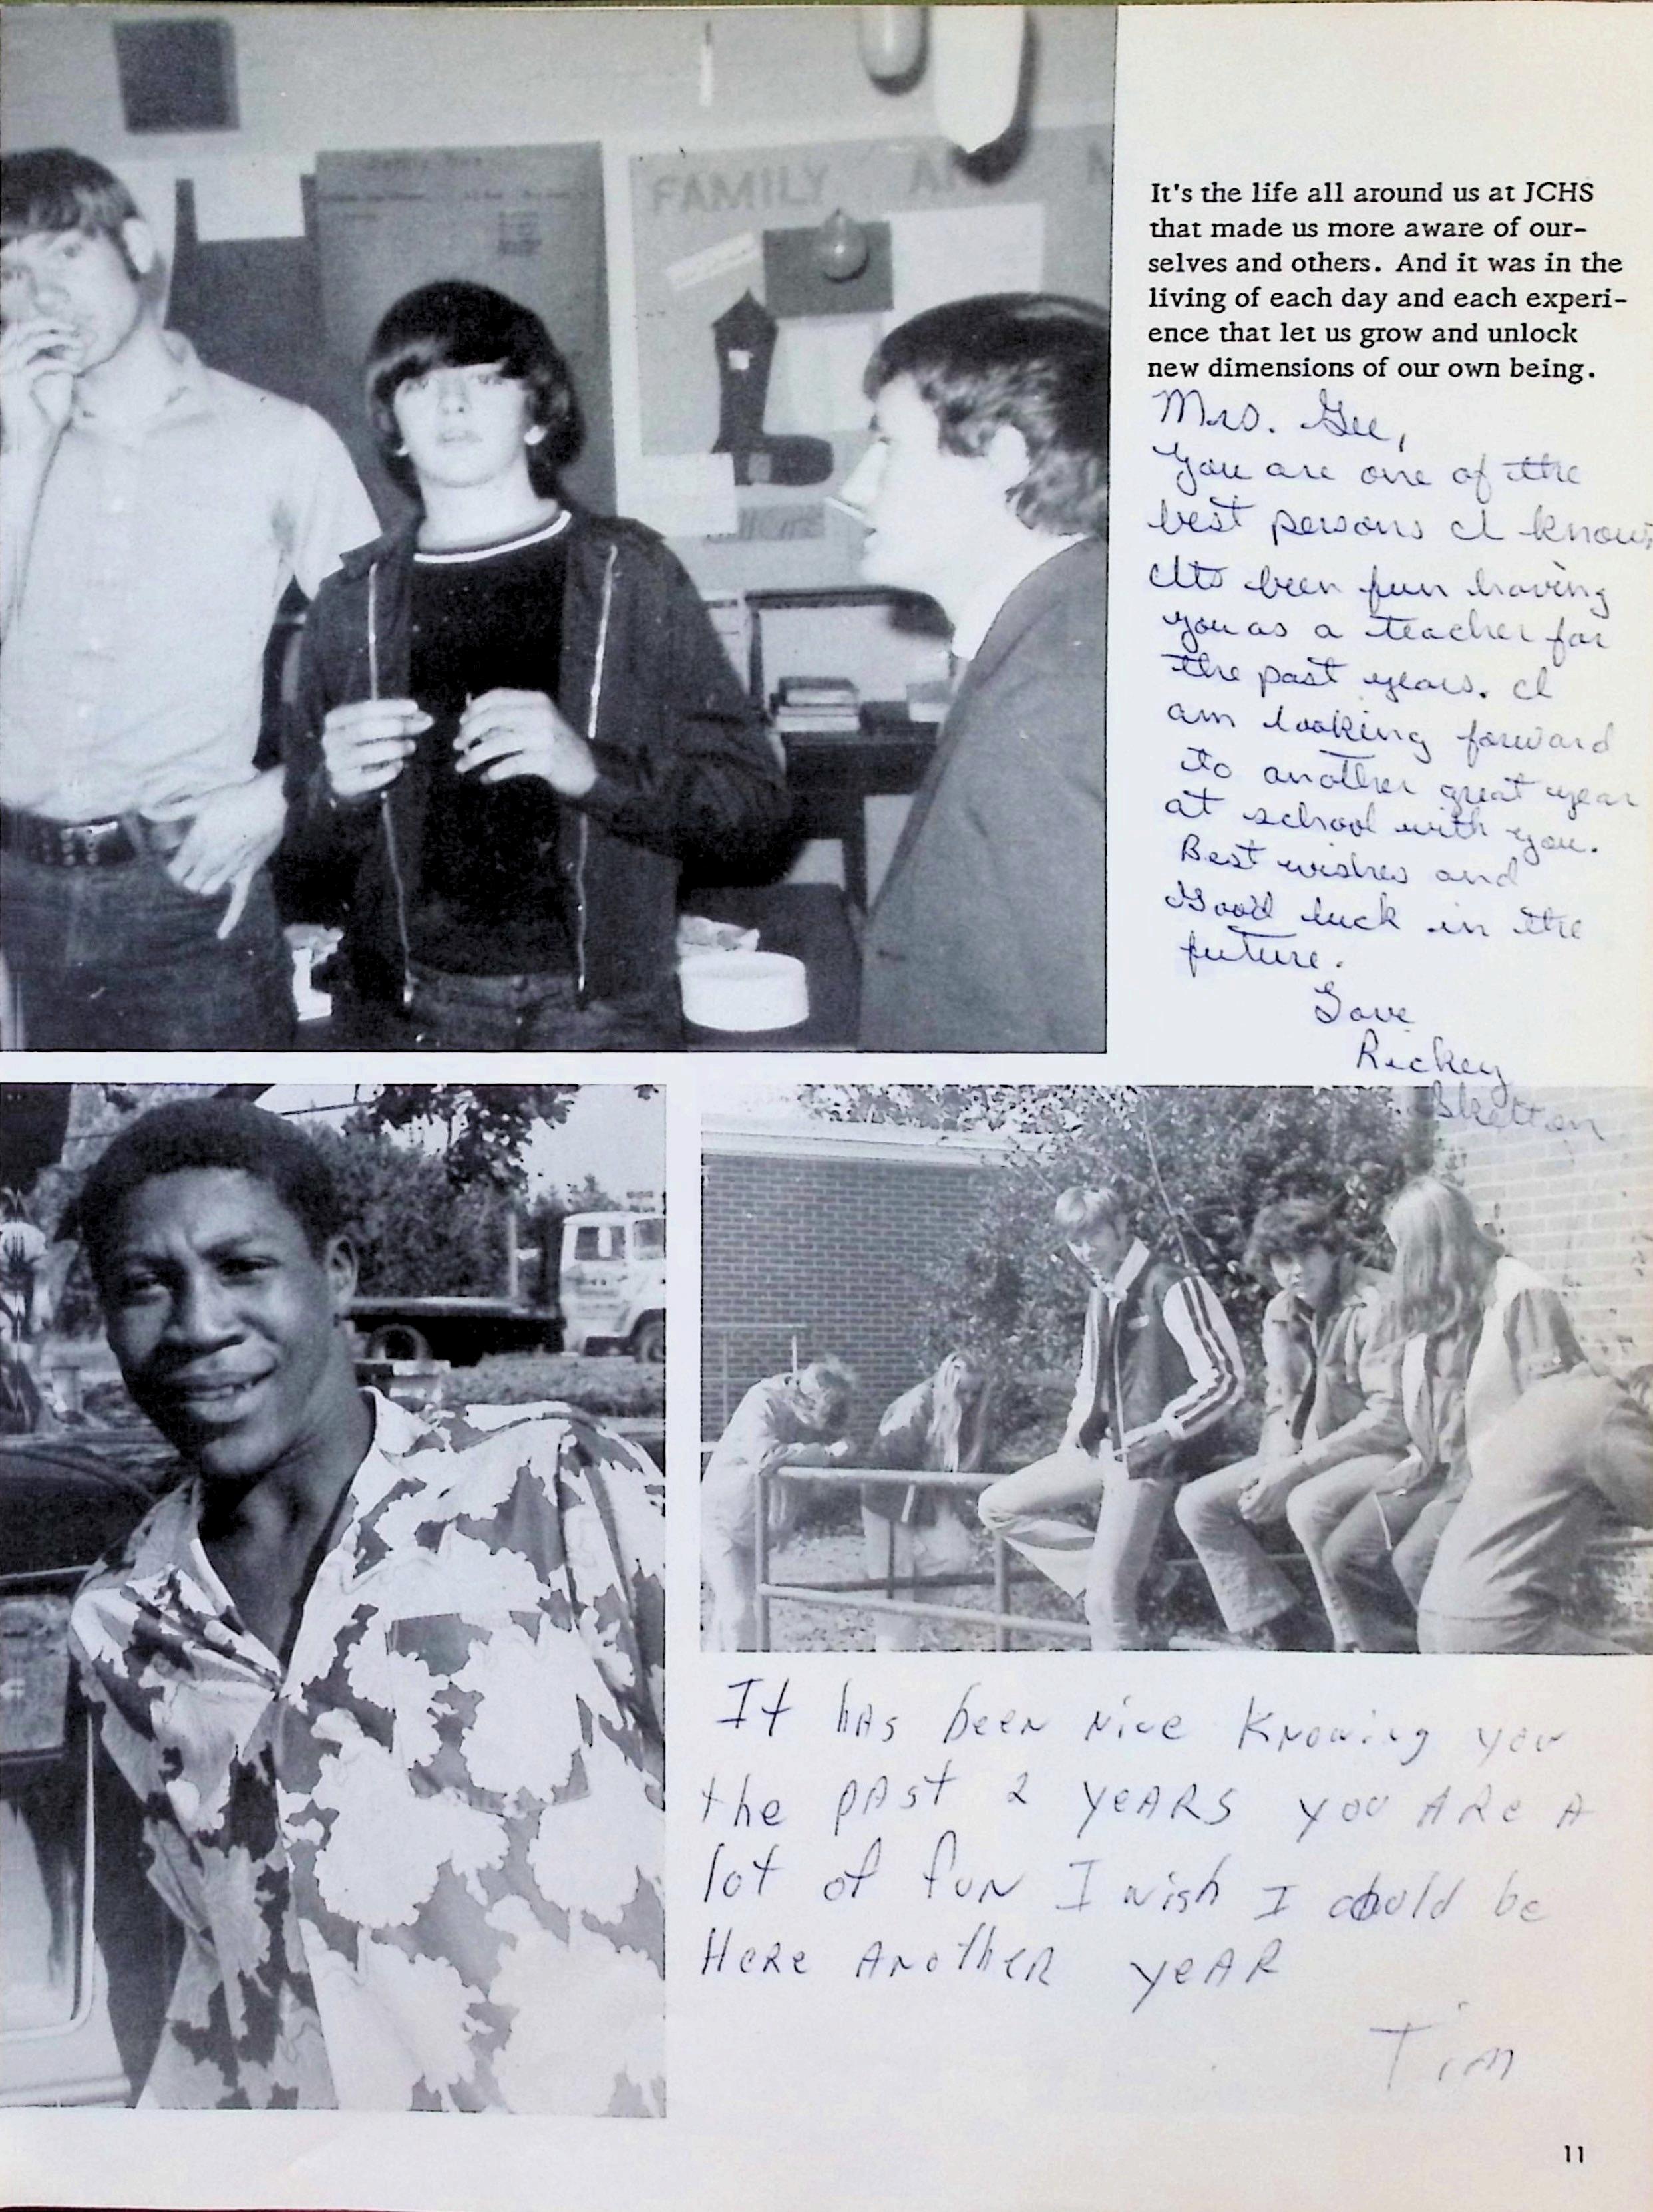 FAMILY
It's the life all around us at JCHS
that made us more aware of our-
selves and others. And it was in the
living of each day and each experi-
ence that let us grow and unlock
new dimensions of our own being.
Mrs. Gee,
You are one of the
best persons I know.
Its been fun having
you as a teacher for
the past years. I
am looking forward
to another great year
at school with you.
Best wishes and
Good luck in the
future.
Love
Rickey
Skelton
It has been nice Knowing you
the past 2 years you are a
lot of fun I wish I could be
Here Another year
Tim
11